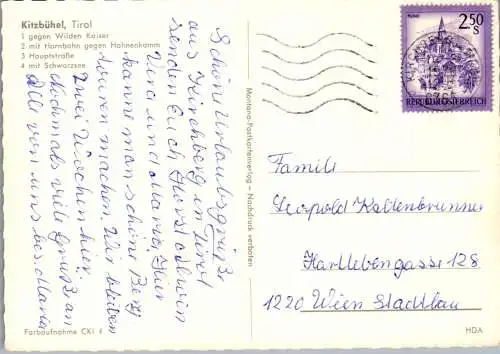 Kitzbühel, Tirol
1 gegen Wilden Kaiser
2 mit Hornbahn gegen Hahnenkamm
3 Hauptstraße
4 mit Schwarzsee
Schöne Urlaubsgrüße
aus Kirchberg in Tirol
senden Euch Horst Edwin
Vera und Maria. Hier
kann man schöne Berg
touren machen. Wir bleiben
zwei Wochen hier.
Nochmals viele Grüße an
alle von uns bes. Maria
Farbaufnahme CKi 4
Montana-Postkartenverlag – Nachdruck verboten
2.50
S
REPUBLIK ÖSTERREICH
Familie
Leopold Kaltenbrunner
Hartlebengasse 128
1220 Wien Stadlau
HDA